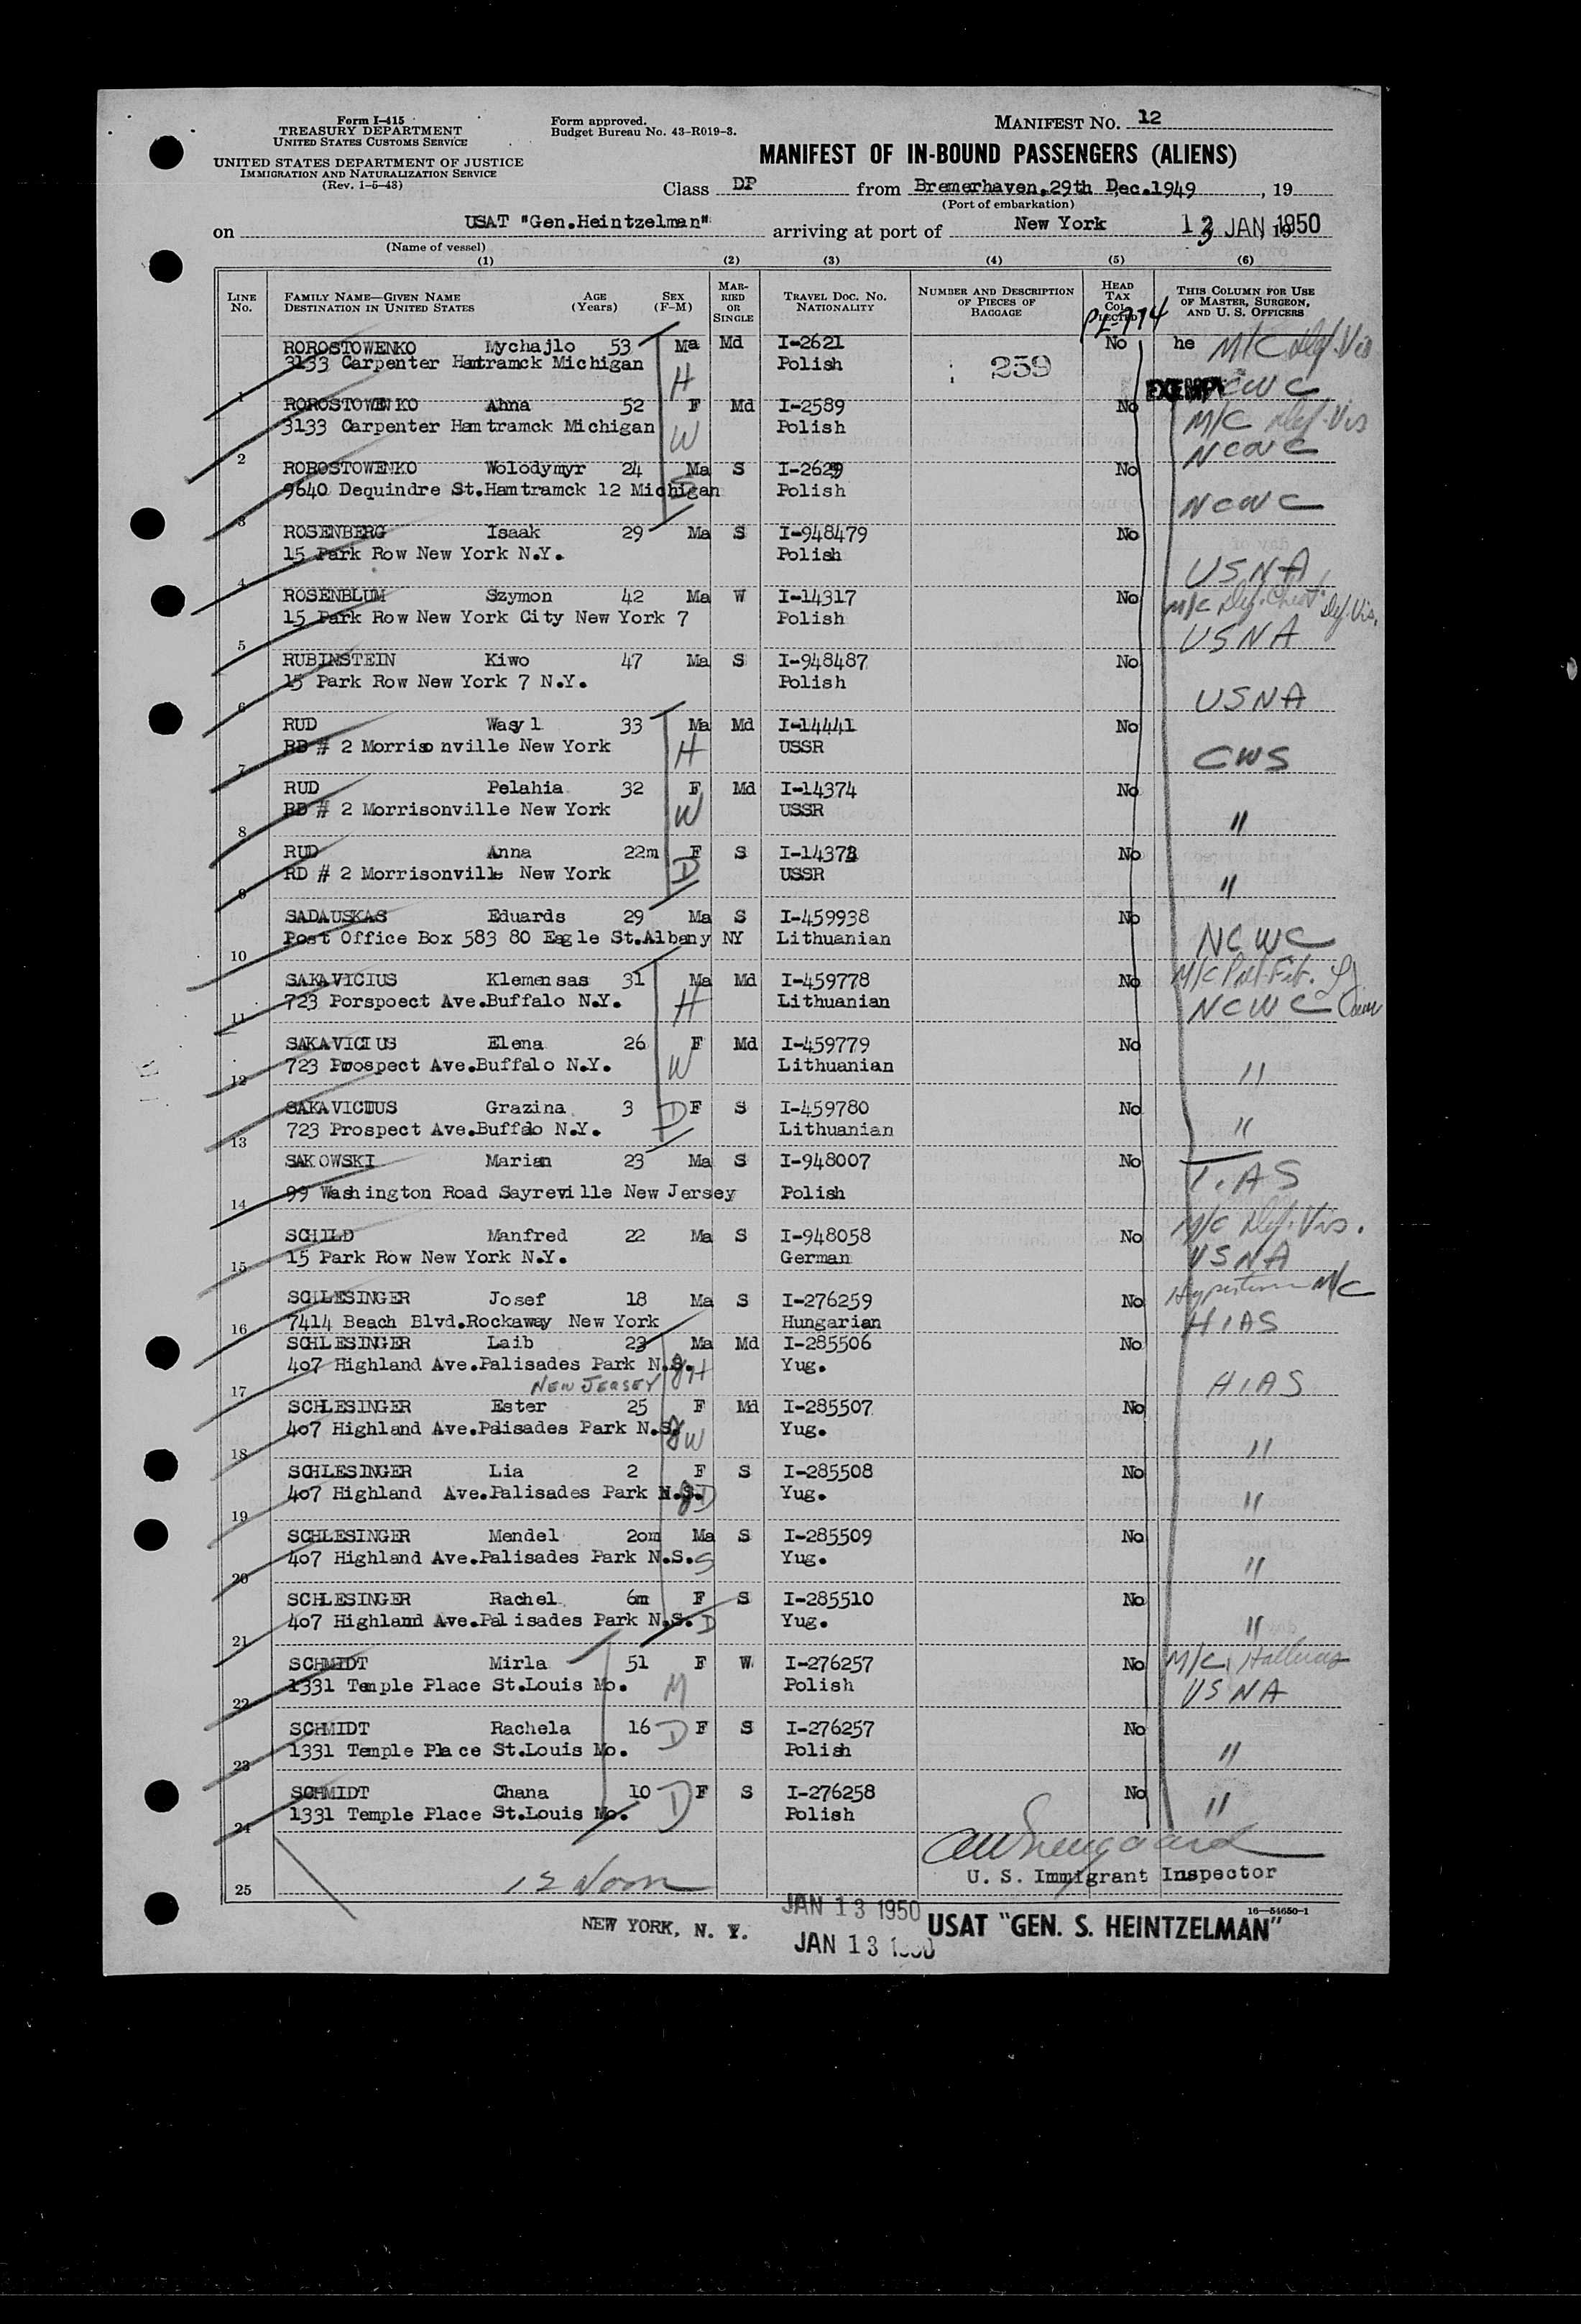 Form I-415
TREASURY DEPARTMENT
UNITED STATES CUSTOMS SERVICE
UNITED STATES DEPARTMENT OF JUSTICE
IMMIGRATION AND NATURALIZATION SERVICE
(Rev. 1-5-48)
Form approved.
Budget Bureau No. 43-R019-3.
MANIFEST NO. 12
MANIFEST OF IN-BOUND PASSENGERS (ALIENS)
Class DP from Bremerhaven.29th Dec.1949, 19
(Port of embarkation)
on USAT "Gen.Heintzelman" arriving at port of New York 13 JAN 1950
(Name of vessel)
(1) (2) (3) (4) (5) (6)
LINE No. FAMILY NAME—GIVEN NAME DESTINATION IN UNITED STATES AGE (Years) SEX (F-M) MARRIED OR SINGLE TRAVEL DOC. No. NATIONALITY NUMBER AND DESCRIPTION OF PIECES OF BAGGAGE HEAD TAX COLLECTED THIS COLUMN FOR USE OF MASTER, SURGEON, AND U. S. OFFICERS
PL-774
ROROSTOWENKO Mychajlo 53 Ma Md I-2621 No he M/C Def. Vis
3133 Carpenter Hamtramck Michigan H Polish 259
1 EXEMPT NCWC
ROROSTOWENKO Ahna 52 F Md I-2589 No M/C Def. Vis
3133 Carpenter Hamtramck Michigan W Polish NCWC
2
ROROSTOWENKO Wolodymyr 24 Ma S I-2629 No
9640 Dequindre St.Hamtramck 12 Michigan S Polish NCWC
3
ROSENBERG Isaak 29 Ma S I-948479 No
15 Park Row New York N.Y. Polish USNA
4
ROSENBLUM Szymon 42 Ma W I-14317 No M/C Def. Chest. Def. Vis.
15 Park Row New York City New York 7 Polish USNA
5
RUBINSTEIN Kiwo 47 Ma S I-948487 No
15 Park Row New York 7 N.Y. Polish USNA
6
RUD Wasyl 33 Ma Md I-14441 No
RD # 2 Morrisonville New York H USSR CWS
7
RUD Pelahia 32 F Md I-14374 No
RD # 2 Morrisonville New York W USSR "
8
RUD Anna 22m F S I-14373 No
RD # 2 Morrisonville New York D USSR "
9
SADAUSKAS Eduards 29 Ma S I-459938 No
Post Office Box 583 80 Eagle St.Albany NY Lithuanian NCWC
10
SAKAVICIUS Klemensas 31 Ma Md I-459778 No M/C
723 Porspoect Ave.Buffalo N.Y. H Lithuanian NCWC
11
SAKAVICIUS Elena 26 F Md I-459779 No
723 Prospect Ave.Buffalo N.Y. W Lithuanian "
12
SAKAVICIUS Grazina 3 D F S I-459780 No
723 Prospect Ave.Buffalo N.Y. Lithuanian "
13
SAKOWSKI Marian 23 Ma S I-948007 No
99 Washington Road Sayreville New Jersey Polish I.AS
14
SCHILD Manfred 22 Ma S I-948058 No M/C Def. Vis.
15 Park Row New York N.Y. German USNA
15
SCHLESINGER Josef 18 Ma S I-276259 No M/C
7414 Beach Blvd.Rockaway New York Hungarian HIAS
16
SCHLESINGER Laib 23 Ma Md I-285506 No
407 Highland Ave.Palisades Park N.J. H Yug.
NEW JERSEY HIAS
17
SCHLESINGER Ester 25 F Md I-285507 No
407 Highland Ave.Palisades Park N.J. W Yug. "
18
SCHLESINGER Lia 2 F S I-285508 No
407 Highland Ave.Palisades Park N.J. D Yug. "
19
SCHLESINGER Mendel 2om Ma S I-285509 No
407 Highland Ave.Palisades Park N.S. S Yug. "
20
SCHLESINGER Rachel 6m F S I-285510 No
407 Highland Ave.Palisades Park N.S. D Yug. "
21
SCHMIDT Mirla 51 F W I-276257 No M/C
1331 Temple Place St.Louis Mo. M Polish USNA
22
SCHMIDT Rachela 16 D F S I-276257 No
1331 Temple Place St.Louis Mo. Polish "
23
SCHMIDT Chana 10 D F S I-276258 No
1331 Temple Place St.Louis Mo. Polish "
24
U. S. Immigrant Inspector
25 12 Noon
16—54650-1
NEW YORK, N. Y. JAN 13 1950 USAT "GEN. S. HEINTZELMAN"
JAN 13 1950